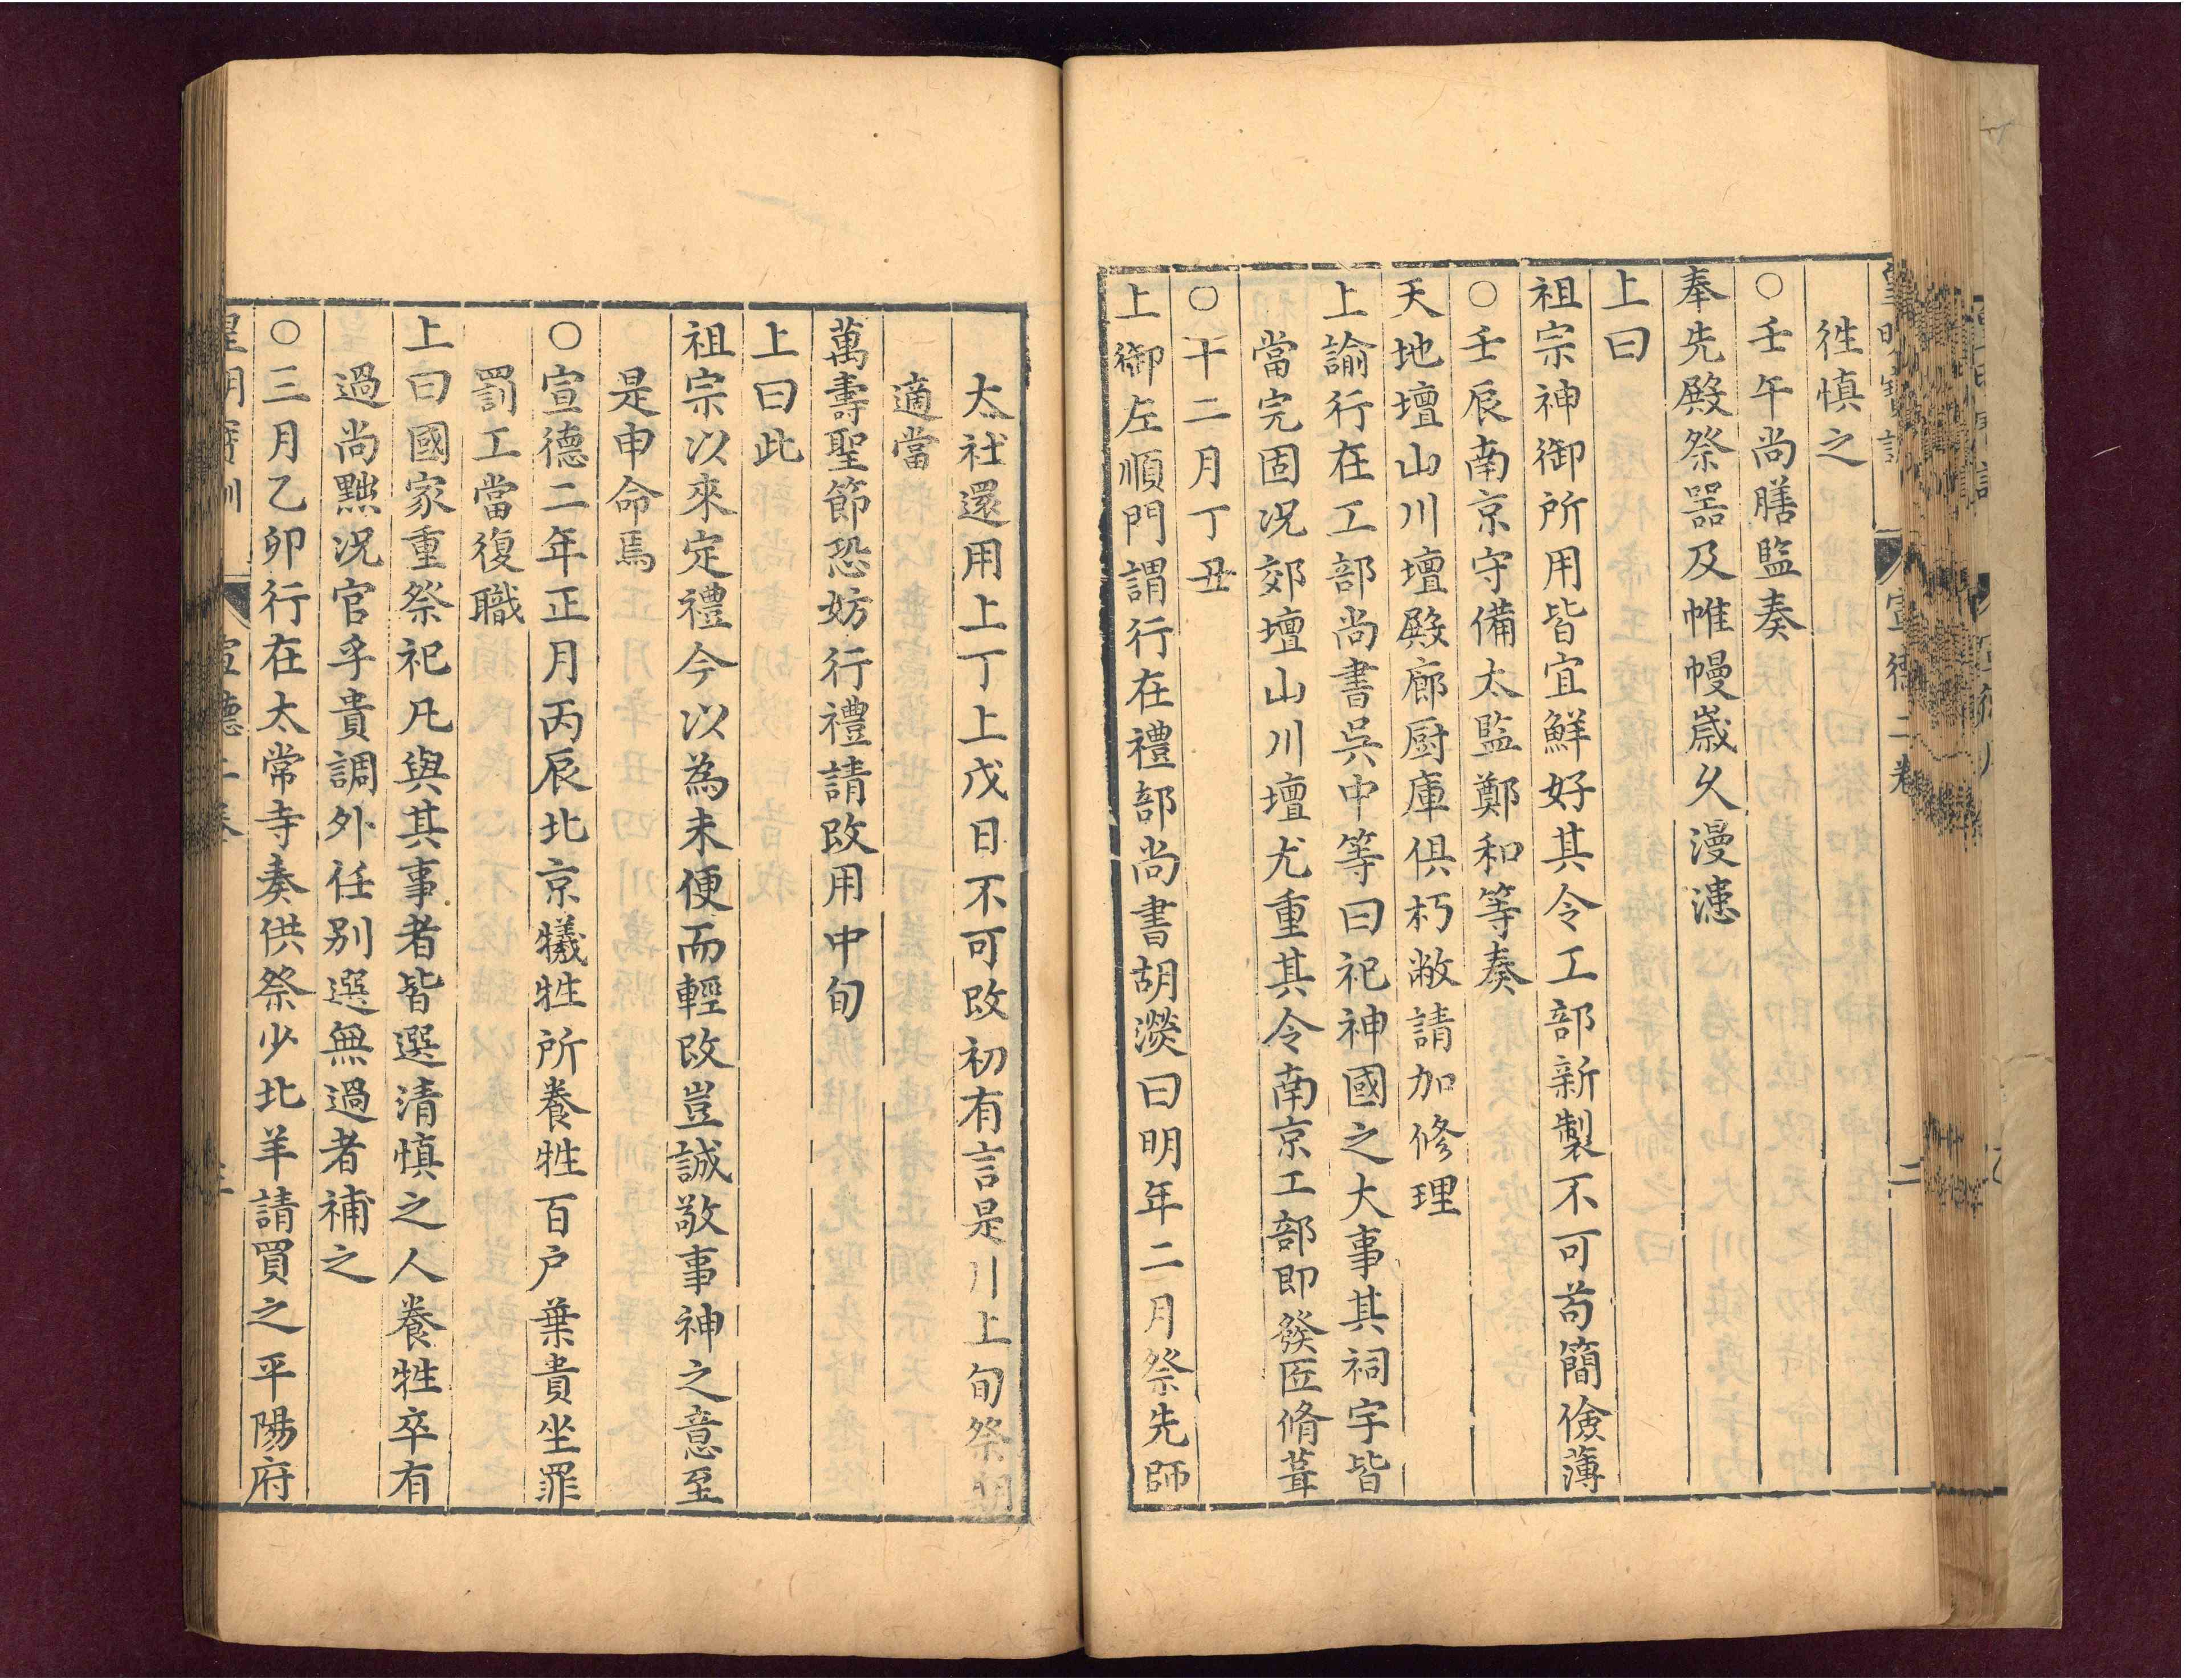 皇明寶訓 宣德二卷 二
徃慎之
○壬午尚膳監奏
奉先殿祭噐及帷幔歳久漫漶
上曰
祖宗神御所用皆宜鮮好其令工部新製不可苟簡儉薄
○壬辰南京守備太監鄭和等奏
天地壇山川壇殿廊厨庫俱朽敝請加修理
上諭行在工部尚書吳中等曰祀神國之大事其祠宇皆
當完固况郊壇山川壇尤重其令南京工部即發匠脩葺
○十二月丁丑
上御左順門謂行在禮部尚書胡濙曰明年二月祭先師
太社還用上丁上戊日不可改初有言是月上旬祭期
適當
萬壽聖節恐妨行禮請改用中旬
上曰此
祖宗以來定禮今以為未便而輕改豈誠敬事神之意至
是申命焉
○宣德二年正月丙辰北京犧牲所養牲百户葉貴坐罪
罰工當復職
上曰國家重祭祀凡與其事者皆選清慎之人養牲卒有
過尚黜况官乎貴調外任别選無過者補之
○三月乙卯行在太常寺奏供祭少北羊請買之平陽府
皇明寶訓 宣德二卷